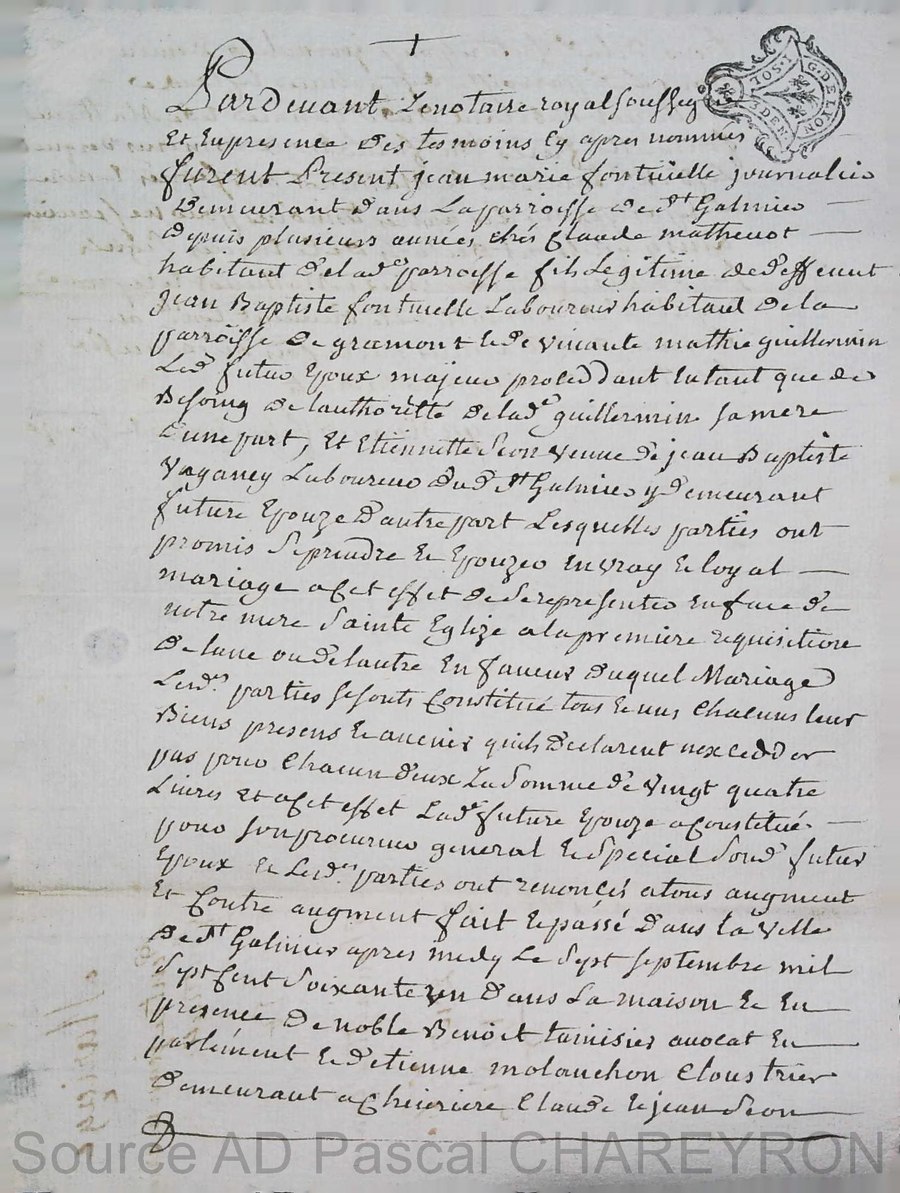 G. DE LYON
1. SOL
8 DEN
Pardevant Le notaire royal soussig
Et En presence des tesmoins Cy apres nommes
furent Present jean marie fontvielle journalier
Demeurant dans La parroisse de St Galmier
depuis plusieurs années chés Claude mathevot
habitant de lade parroisse fils Legitime de deffunt
jean Baptiste fontvielle Laboureur habitant de la
parroisse de gramont & de vivante mathie guillermin
Led futur Epoux majeur proceddant Entant que de
Besoing de lauthoritté de lade guillermin sa mere
d'une part, Et Etiennette Seon veuve de jean Baptiste
Vaganey Laboureur dud St Galmier y demeurant
future Epouze d'autre part Lesquelles parties ont
promis se prendre & Epouzer En vray & loyal
mariage a Cet effet de se representer En face de
notre mere Sainte Eglize a la premiere requisitione
de lune ou de lautre En faveur duquel Mariage
Lesd. parties se sonts Constitué tous & uns Chacuns leur
Biens presens & avenir quils declarent nexcedder
pas pour Chacun deux La Somme de vingt quatre
Livres Et a Cet effet Lade future Epouze a Constitué
pour son procureur general & Special Soud futur
Epoux & Lesd. parties ont renoncés a tous augment
Et Contre augment fait & passé Dans la ville
de St Galmier apres midy Le Sept Septembre mil
Sept Cent Soixante un Dans La maison & En
presence de noble Benoit tamisier avocat En
parlement & d'etienne molanchon Cloustrier
demeurant a Chevriere Claude & jean Seon
Source AD Pascal CHAREYRON